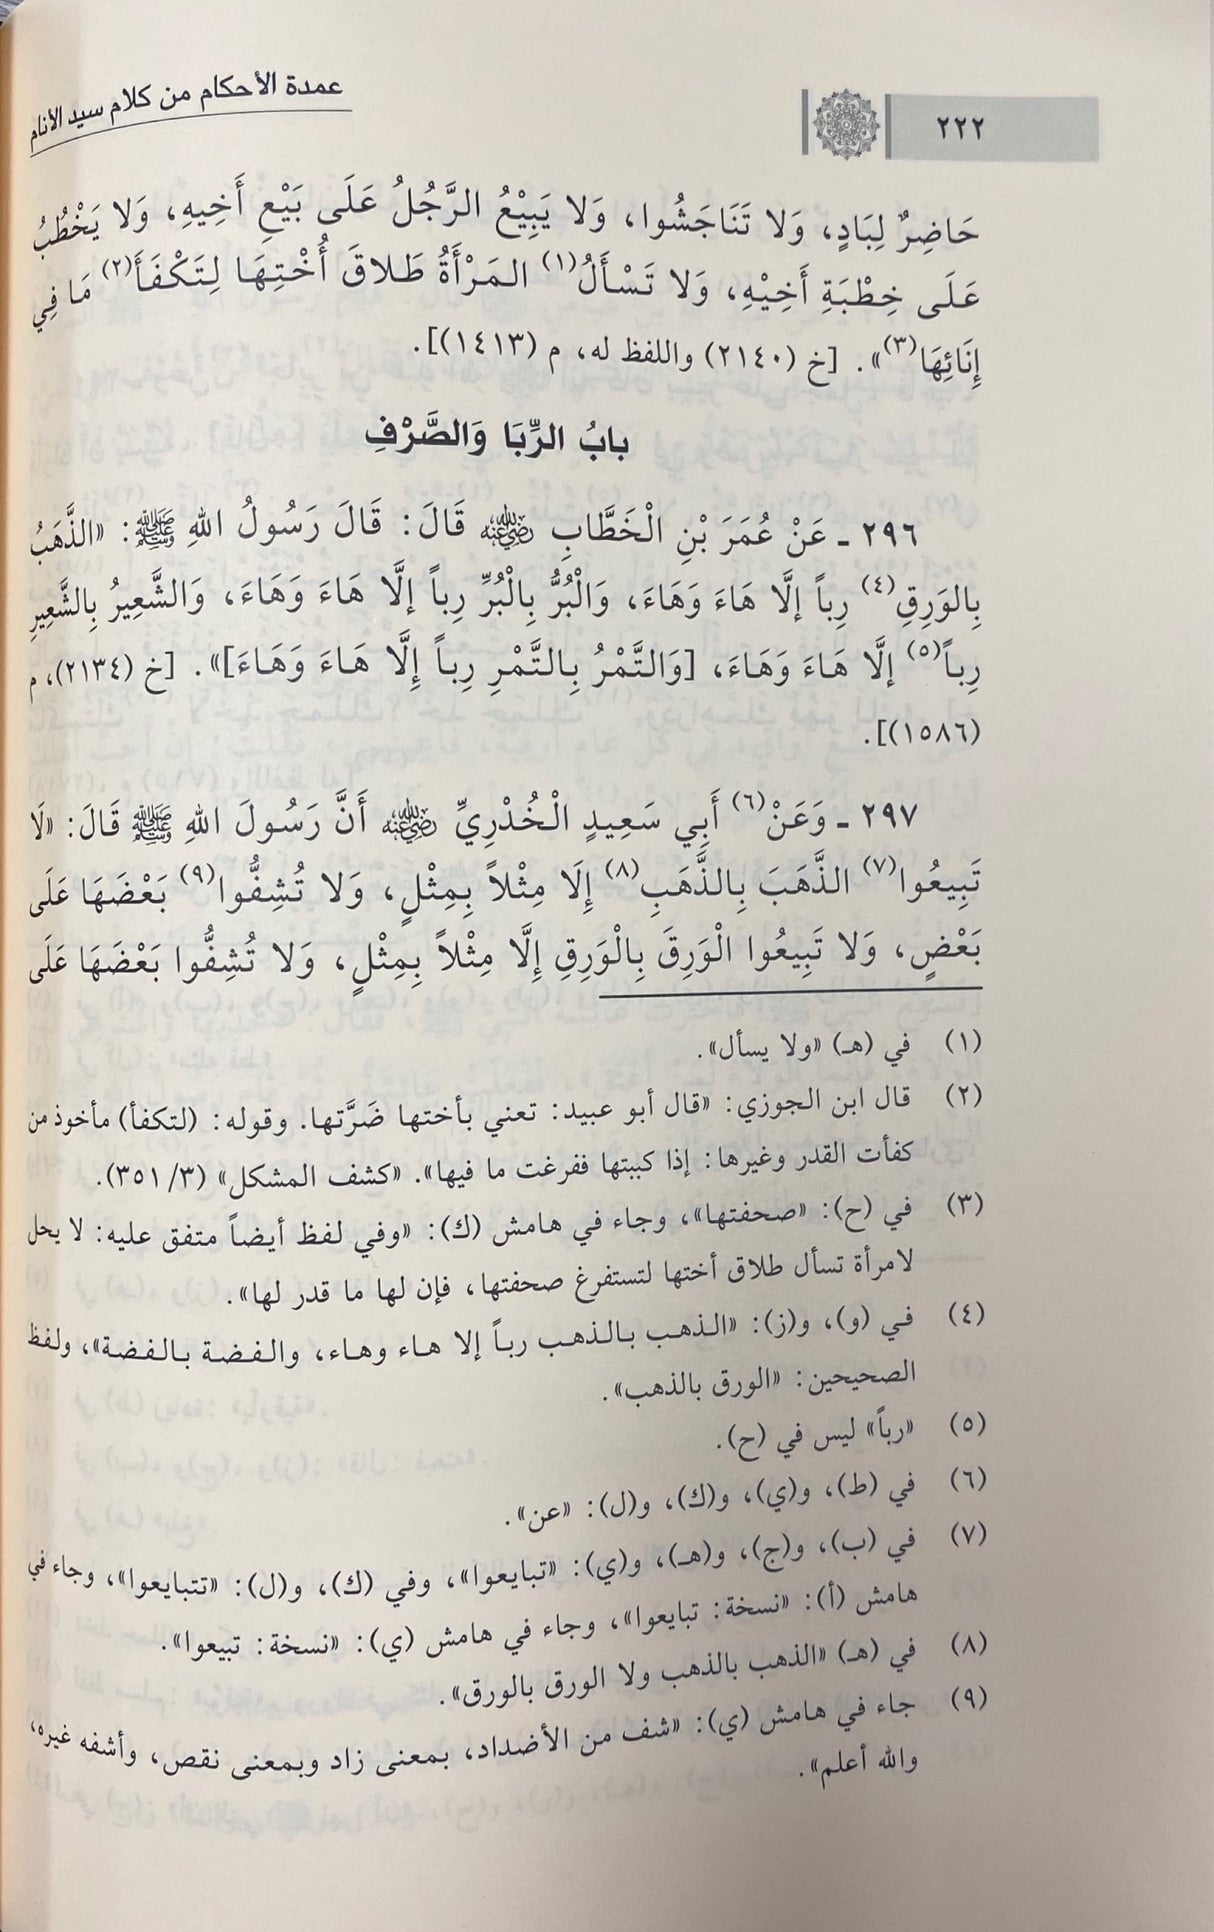 عمدة الأحكام من كلام سيد الأنام
٢٢٢
حَاضِرٌ لِبَادٍ، وَلا تَنَاجَشُوا، وَلا يَبِيْعُ الرَّجُلُ عَلَى بَيْعِ أَخِيهِ، وَلا يَخْطُبُ
عَلَى خِطْبَةِ أَخِيْهِ، وَلا تَسْأَلُ(١) المَرْأَةُ طَلاقَ أُخْتِهَا لِتَكْفَأَ(٢) مَا فِي
إِنَائِهَا(٣)». [خ (٢١٤٠) واللفظ له، م (١٤١٣)].
بابُ الرِّبَا وَالصَّرْفِ
٢٩٦ ـ عَنْ عُمَرَ بْنِ الْخَطَّابِ رضي الله عنه قَالَ: قَالَ رَسُولُ اللهِ ﷺ: «الذَّهَبُ
بِالوَرِقِ(٤) رِباً إلَّا هَاءَ وَهَاءَ، وَالْبُرُّ بِالْبُرِّ رِباً إلَّا هَاءَ وَهَاءَ، وَالشَّعِيرُ بِالشَّعِيرِ
رِباً(٥) إلَّا هَاءَ وَهَاءَ، [وَالتَّمْرُ بِالتَّمْرِ رِباً إِلَّا هَاءَ وَهَاءَ]». [خ (٢١٣٤)، م
(١٥٨٦)].
٢٩٧ ـ وَعَنْ(٦) أَبِي سَعِيدٍ الْخُدْرِيِّ رضي الله عنه أَنَّ رَسُولَ اللهِ ﷺ قَالَ: «لَا
تَبِيعُوا(٧) الذَّهَبَ بِالذَّهَبِ(٨) إِلَا مِثْلاً بِمِثْلٍ، وَلا تُشِفُّوا(٩) بَعْضَهَا عَلَى
بَعْضٍ، وَلا تَبِيعُوا الْوَرِقَ بِالْوَرِقِ إِلَّا مِثْلاً بِمِثْلٍ، وَلا تُشِفُّوا بَعْضَهَا عَلَى
(١) في (هـ) «ولا يسأل».
(٢) قال ابن الجوزي: «قال أبو عبيد: تعني بأختها ضَرَّتها. وقوله: (لتكفأ) مأخوذ من
كفأت القدر وغيرها: إذا كببتها ففرغت ما فيها». «كشف المشكل» (٣/ ٣٥١).
(٣) في (ح): «صحفتها»، وجاء في هامش (ك): «وفي لفظ أيضاً متفق عليه: لا يحل
لامرأة تسأل طلاق أختها لتستفرغ صحفتها، فإن لها ما قدر لها».
(٤) في (و)، و(ز): «الذهب بالذهب رباً إلا هاء وهاء، والفضة بالفضة»، ولفظ
الصحيحين: «الورق بالذهب».
(٥) «رباً» ليس في (ح).
(٦) في (ط)، و(ي)، و(ك)، و(ل): «عن».
(٧) في (ب)، و(ج)، و(هـ)، و(ي): «تبايعوا»، وفي (ك)، و(ل): «تتبايعوا»، وجاء في
هامش (أ): «نسخة: تبايعوا»، وجاء في هامش (ي): «نسخة: تبيعوا».
(٨) في (هـ) «الذهب بالذهب ولا الورق بالورق».
(٩) جاء في هامش (ي): «شف من الأضداد، بمعنى زاد وبمعنى نقص، وأشفه غيره،
والله أعلم».